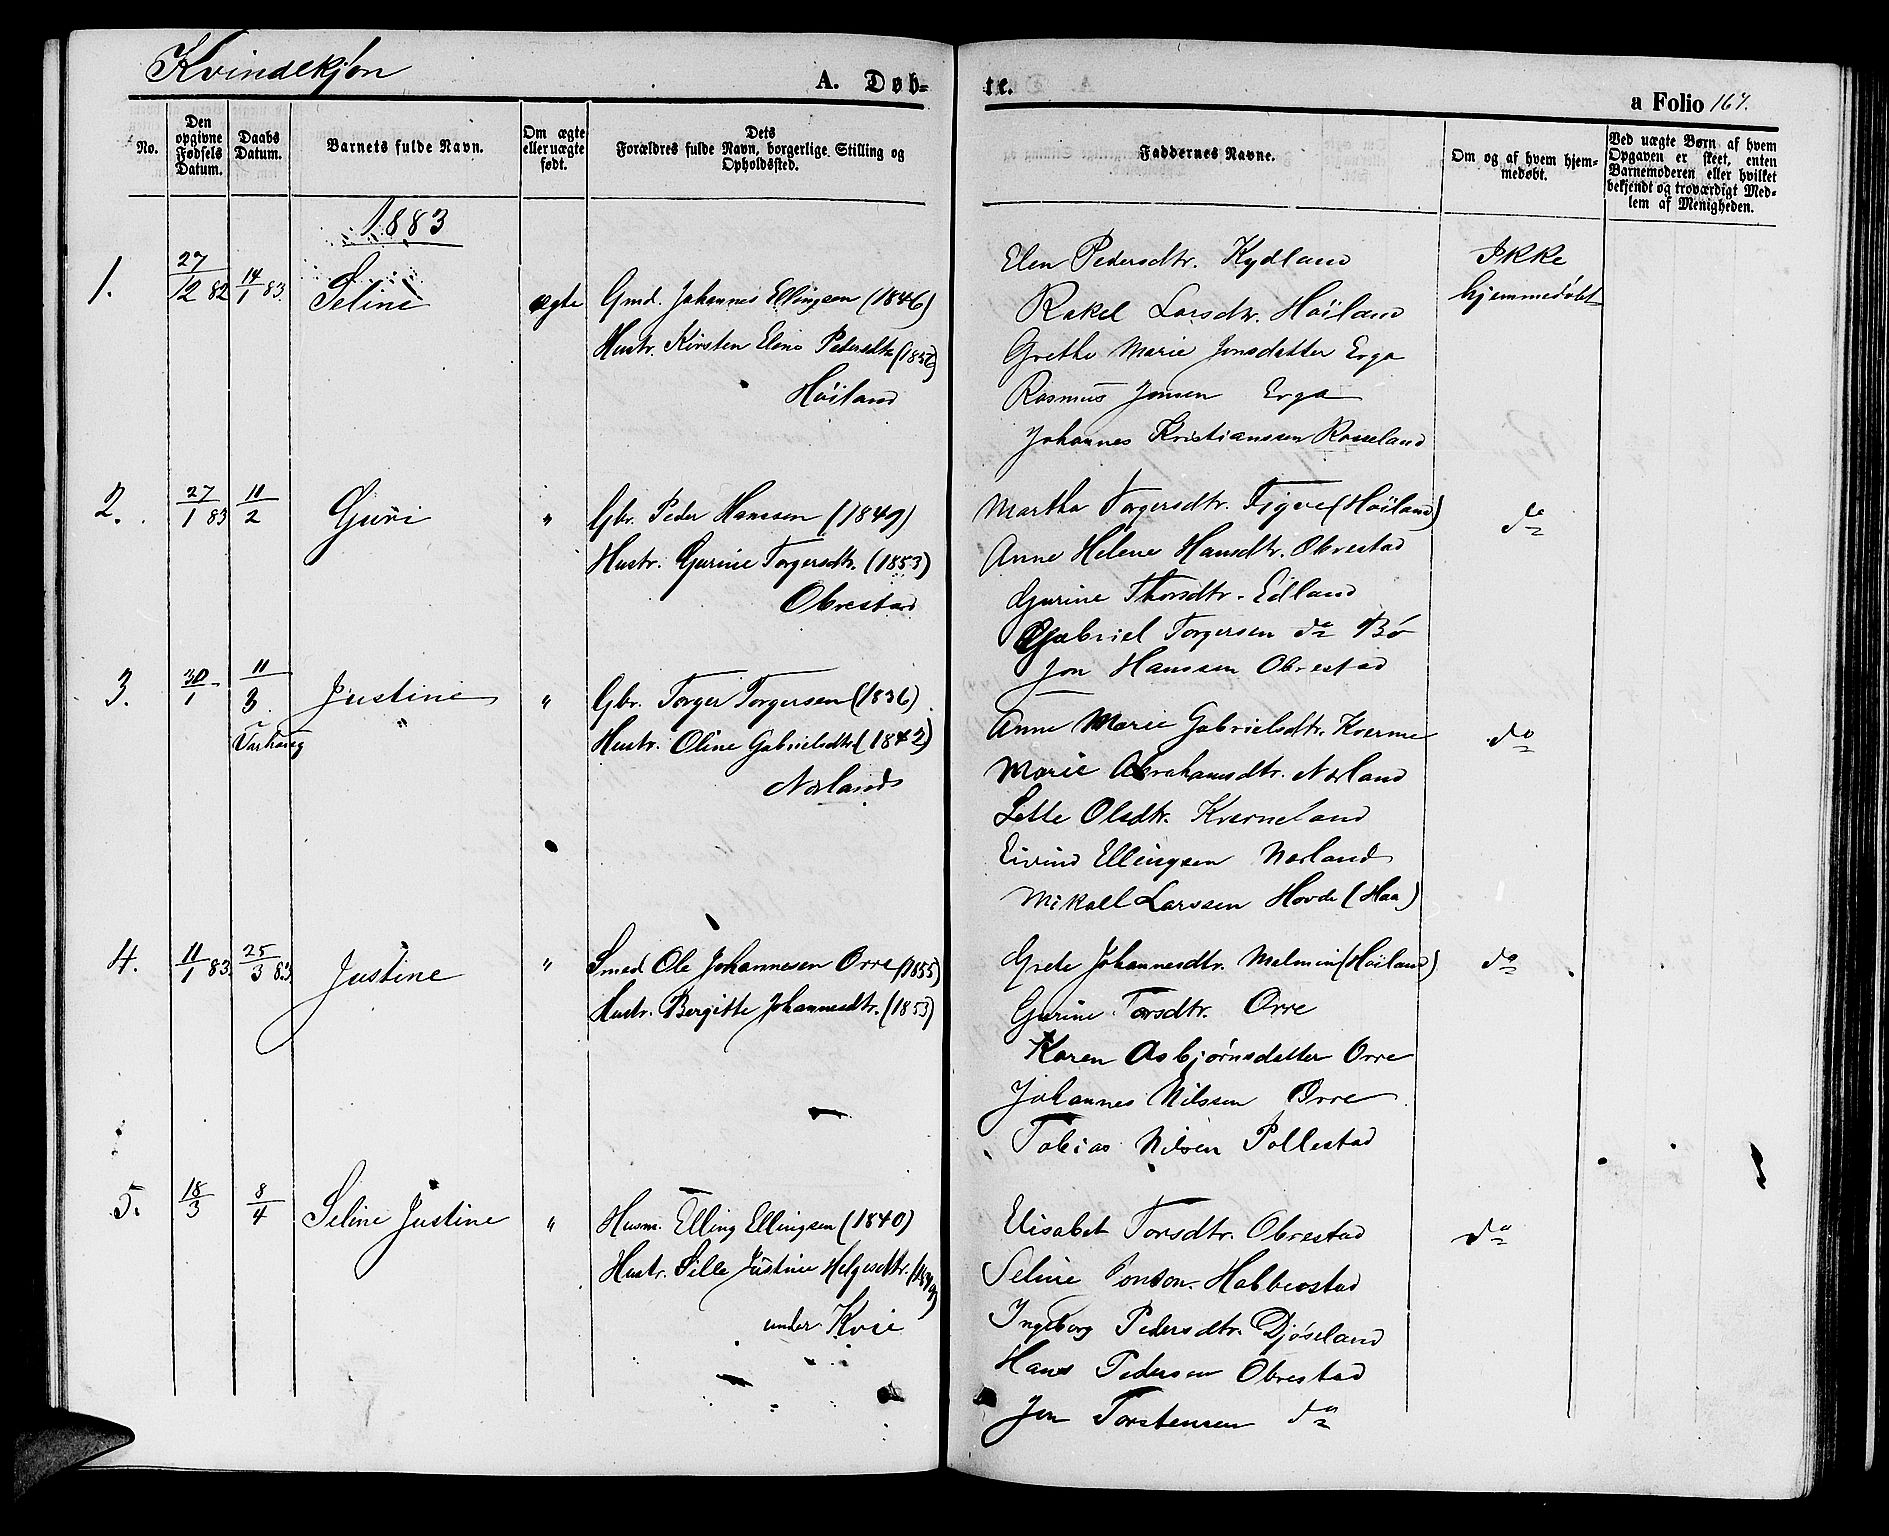 Kvindekjøn
A. Døb-
te.
a Folio 167.
No.
Den opgivne Fødsels Datum.
Daabs Datum.
Barnets fulde Navn.
Om ægte eller uægte født.
Dets Forældres fulde Navn, borgerlige Stilling og Opholdsted.
Faddernes Navne.
Om og af hvem hjemmedøbt.
Ved uægte Børn af hvem Opgaven er skeet, enten Barnemoderen eller hvilket bekjendt og troværdigt Medlem af Menigheden.
1883
1.
27/12 82
14/1 83.
Seline
ægte
Gmd. Johannes Ellingsen (1846)
Hustr. Kirsten Elene Pedersdtr
Høiland
Elen Pedersdtr. Kydland
Rakel Larsdtr. Høiland
Grethe Marie Jonsdatter Erga
Rasmus Jonsen Erga
Johannes Kristianssen Rosseland
Ikke
hjemmedøbt
2.
27/1 83
11/2
Guri
"
Gbr. Peder Hanssen (1849)
Hustr. Gurine Torgersdtr. (1853)
Obrestad
Martha Torgersdtr. Tjgve (Høiland)
Anne Helene Hansdtr. Obrestad
Gurine Thorsdtr. Edland
Gabriel Torgersen do Bø
Jon Hanssen Obrestad
do
3.
30/1
11/3.
Varhaug
Justine
"
Gbr. Torger Torgersen (1836)
Hustr. Oline Gabrielsdtr (1842)
Nærland
Anne Marie Gabrielsdtr. Kverme
Marie Abrahamsdtr. Nærland
Lette Olsdtr. Kverneland
Eivind Ellingsen Nærland
Mikall Larssen Hovde (Haa)
do
4.
11/1 83.
25/3 83
Justine
"
Smed Ole Johannesen Orre (1855)
Hustr. Bergitte Johannesdtr. (1853)
Grete Johannesdtr. Malmin (Høiland)
Gurine Torsdtr. Orre
Karen Asbjørnsdatter Orre
Johannes Nilssen Orre
Tobias Nilsen Pollestad
do
5.
18/3
8/4
Seline Justine
"
Husm. Elling Ellingsen (1840)
Hustr. Sille Justine Helgesdtr.
under Kvie
Elisabet Torsdtr. Obrestad
Seline Habberstad
Ingeborg Pedersdtr. Djøseland
Hans Pedersen Obrestad
Jon Torstensen do
do